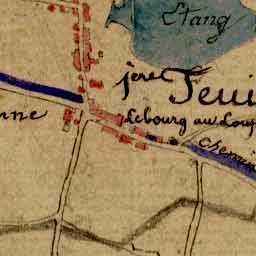 Etang
jere Feui
nne
Lebourg au Loup
Chemin